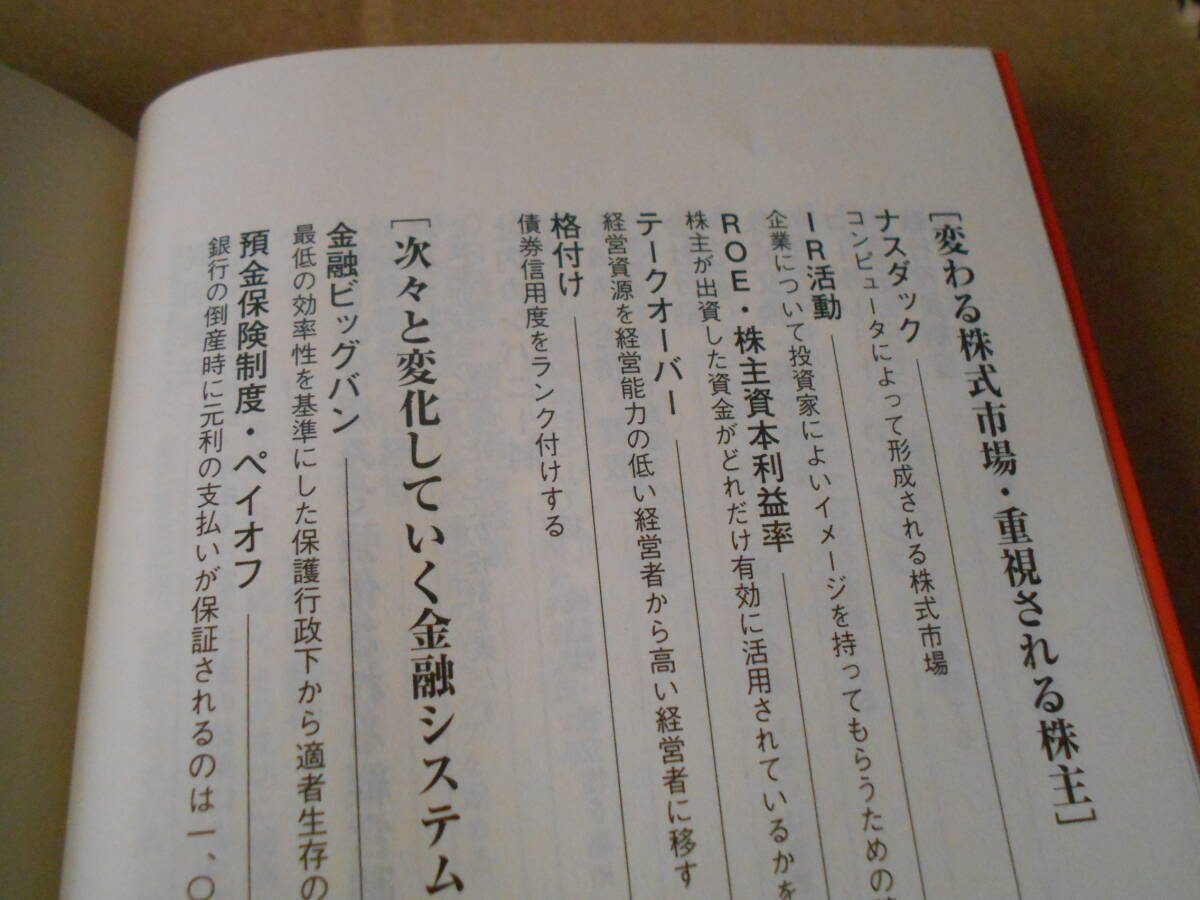 [変わる株式市場・重視される株主]
ナスダック
コンピュータによって形成される株式市場
IR活動
企業について投資家によいイメージを持ってもらうための
ROE・株主資本利益率
株主が出資した資金がどれだけ有効に活用されているかを
テークオーバー
経営資源を経営能力の低い経営者から高い経営者に移す
格付け
債券信用度をランク付けする
[次々と変化していく金融システム
金融ビッグバン
最低の効率性を基準にした保護行政下から適者生存の
預金保険制度・ペイオフ
銀行の倒産時に元利の支払いが保証されるのは一、〇